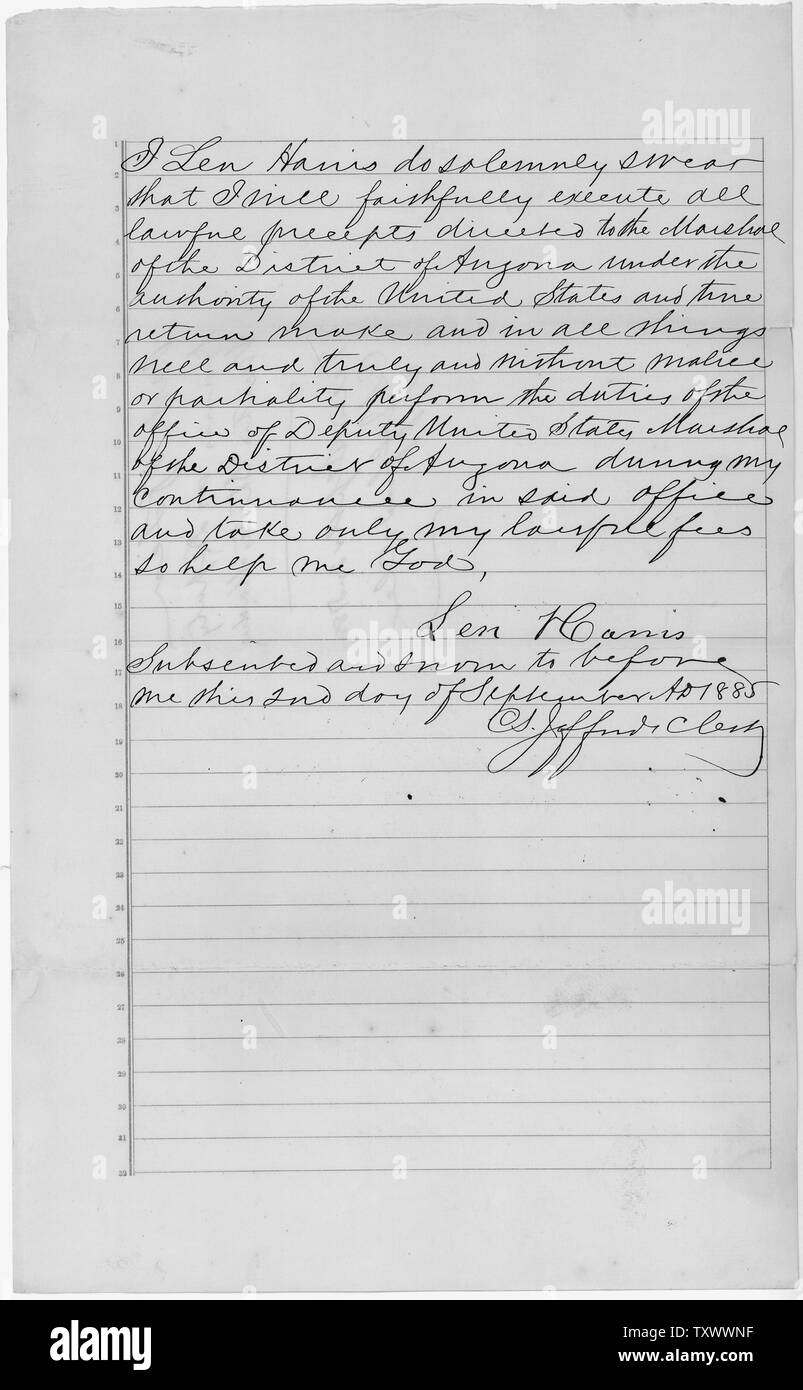 I Len Harris do solemnly swear
that I will faithfully execute all
lawful precepts directed to the Marshal
of the District of Arizona under the
authority of the United States and true
return make and in all things
well and truly and without malice
or partiality perform the duties of the
office of Deputy United States Marshal
of the District of Arizona during my
continuance in said office
and take only my lawful fees
so help me God,
Len Harris
Subscribed and sworn to before
me this 2nd day of September AD 1885
Clerk
1
2
3
4
5
6
7
8
9
10
11
12
13
14
15
16
17
18
19
20
21
22
23
24
25
26
27
28
29
30
31
32
alamy
alamy
alamy
a alamy
Image ID: TXWWNF
www.alamy.com